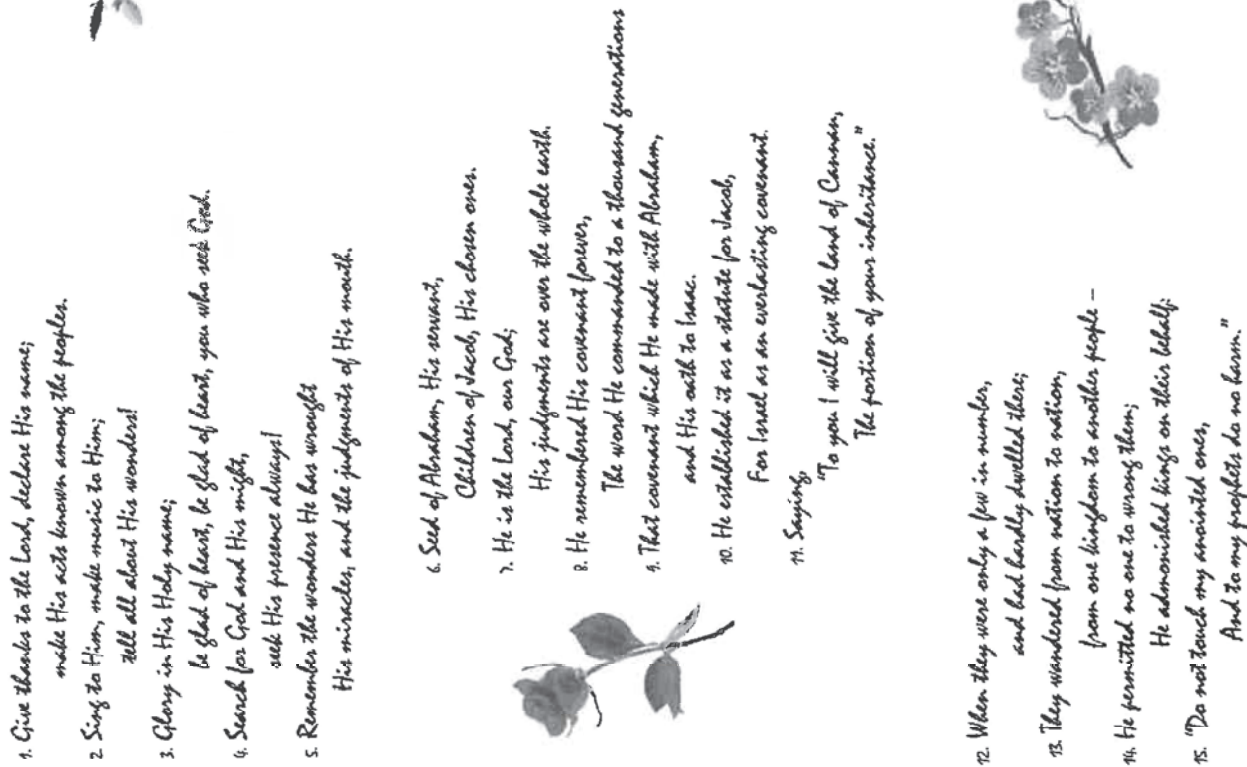 1. Give thanks to the Lord, declare His name;
make His acts known among the peoples.
2. Sing to Him, make music to Him;
tell all about His wonders!
3. Glory in His Holy name;
be glad of heart, be glad of heart, you who seek God.
4. Search for God and His might,
seek His presence always!
5. Remember the wonders He has wrought
His miracles, and the judgments of His mouth.
6. Seed of Abraham, His servant,
Children of Jacob, His chosen ones.
7. He is the Lord, our God;
His judgments are over the whole earth.
8. He remembered His covenant forever,
The word He commanded to a thousand generations
9. That covenant which He made with Abraham,
and His oath to Isaac.
10. He established it as a statute for Jacob,
For Israel as an everlasting covenant.
11. Saying,
"To you I will give the land of Cannan,
The portion of your inheritance."
12. When they were only a few in number,
and had hardly dwelled there;
13. They wandered from nation to nation,
from one kingdom to another people –
14. He permitted no one to wrong them;
He admonished kings on their behalf;
15. "Do not touch my anointed ones,
And to my prophets do no harm."